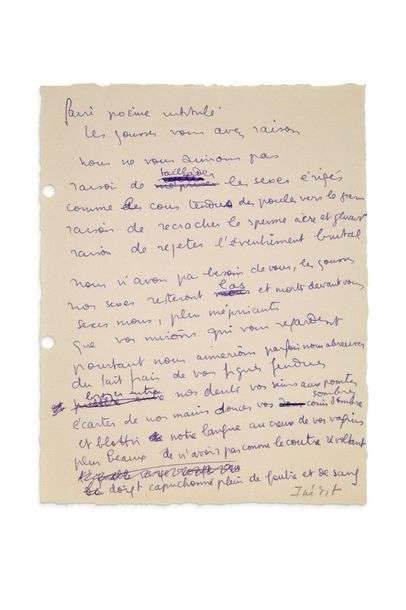 Paris poème intitulé
Les gousses vous avez raison
nous ne vous aimons pas
raison de taillader les sexes érigés
comme des cous tendus des poules vers le grain
raison de recracher le sperme âcre et gluant
raison de rejeter l'éventrement brutal
nous n'avons pas besoin de vous, les gousses
nos sexes resteront las et morts devant vous
sexes mous, plus méprisants
que vos visions qui vous regardent
pourtant nous aimerions parfois nous abreuver
du lait frais de vos figues fendues
broyer entre nos doigts vos seins aux pointes sombres
écarter de nos mains douces vos
et blottir notre langue au creux de vos vagins
plus beaux de n'avoir pas connu le coutre révoltant
doigt capuchonné plein de foutre et de sang
Inédit